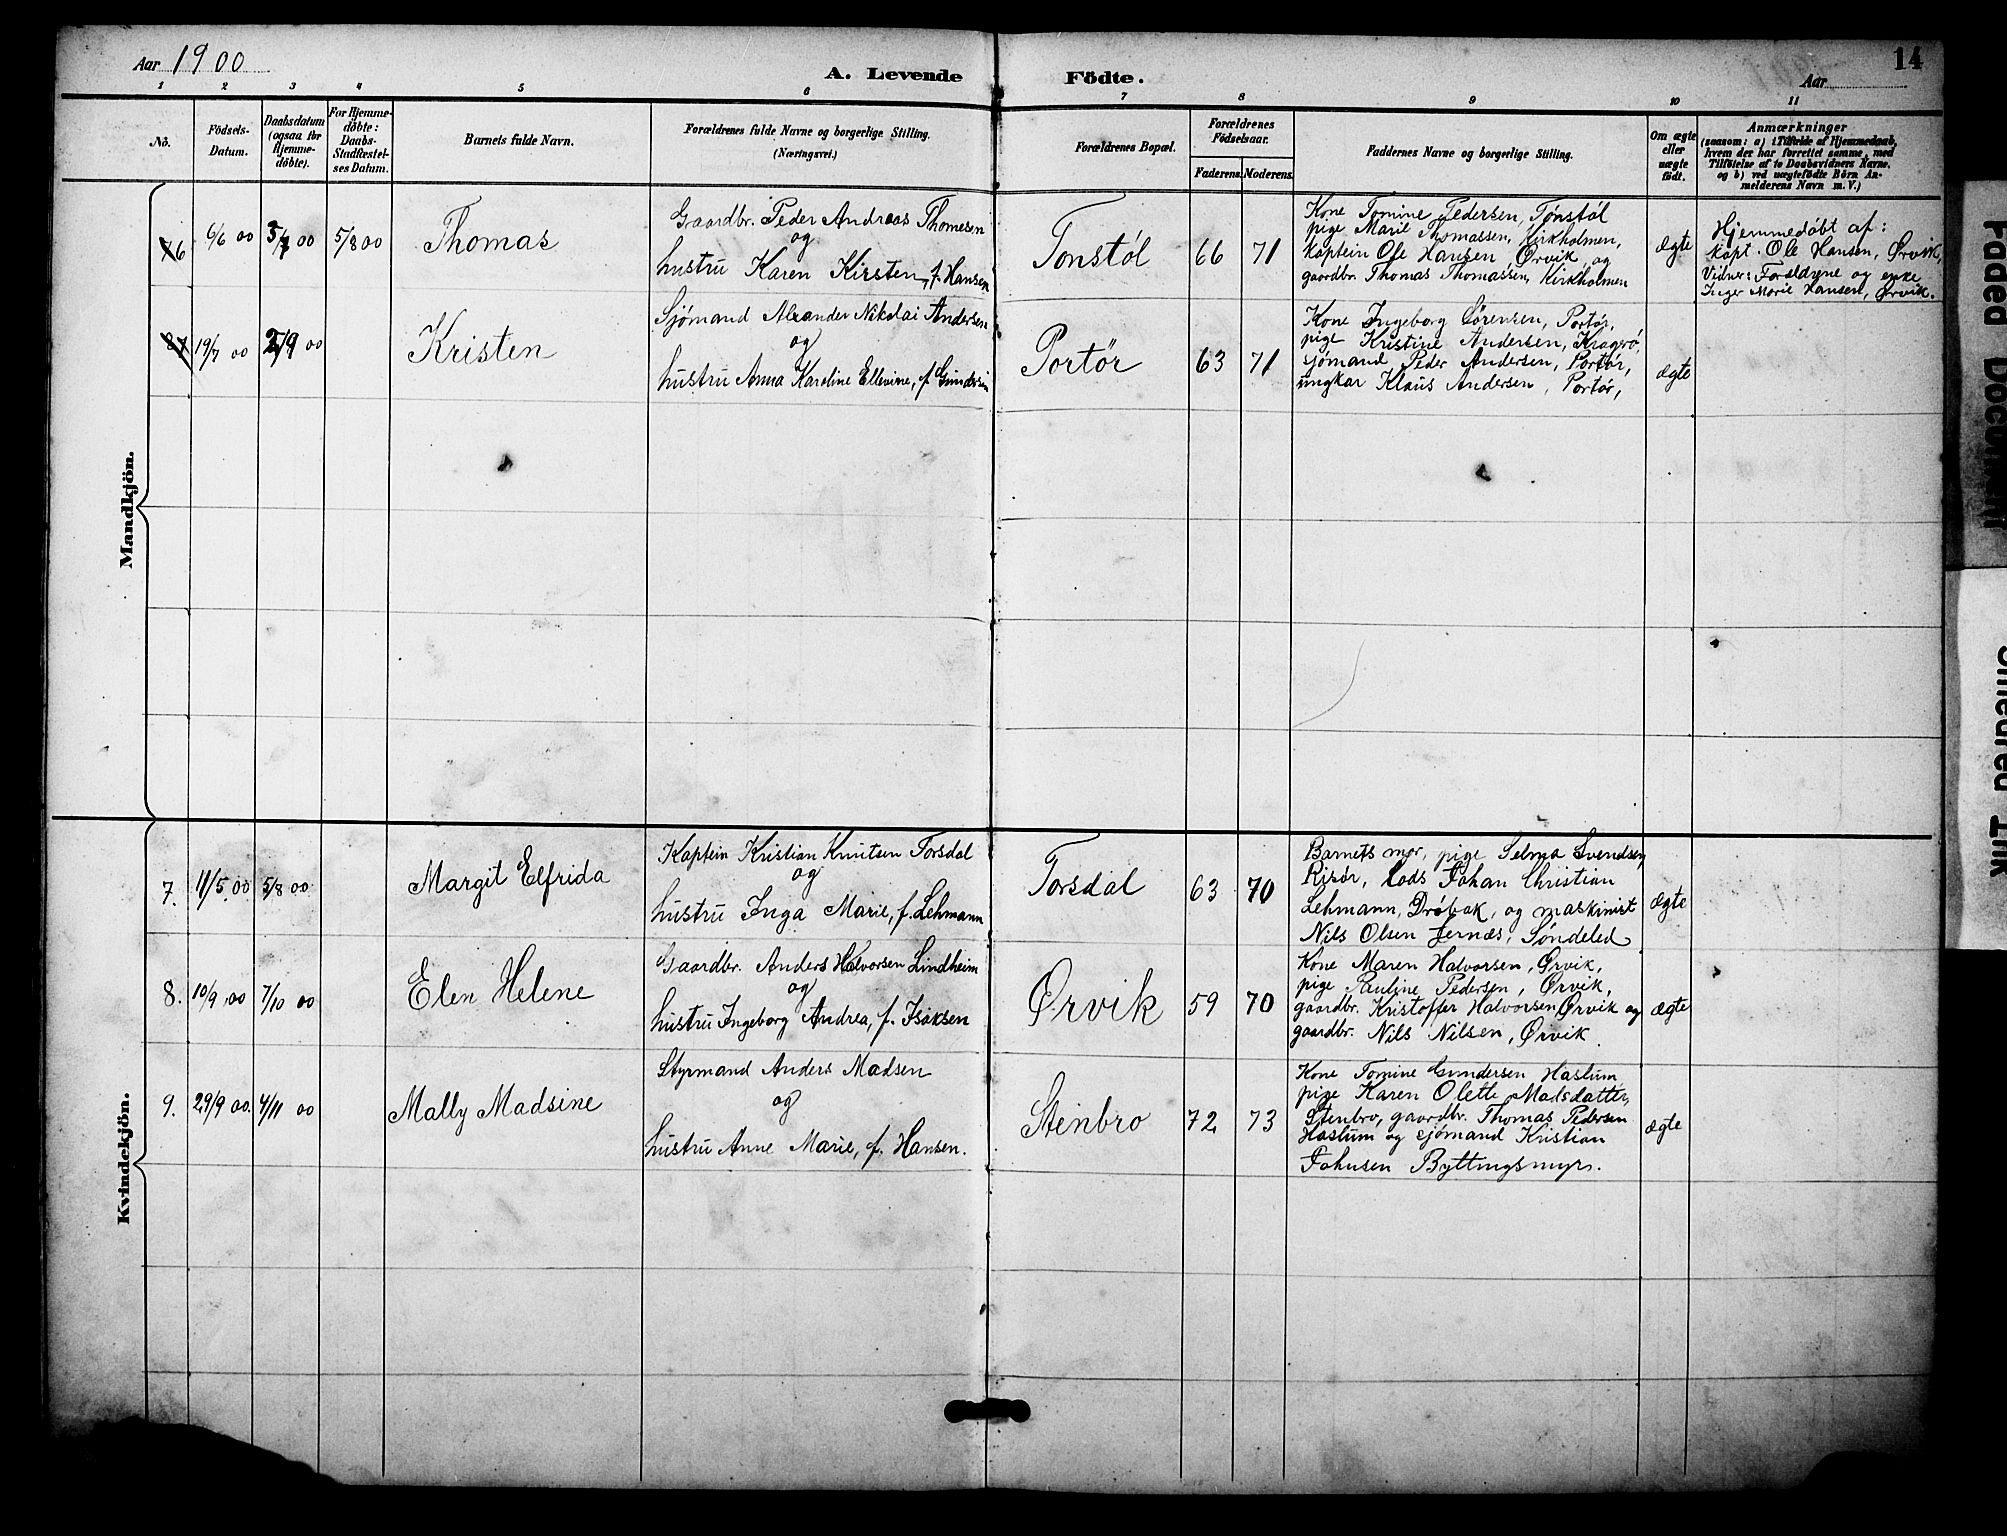 Aar 1900
A. Levende Födte.
14
Aar
1 2 3 4 5 6 7 8 9 10 11
No.
Födsels-
Datum.
Daabsdatum
(ogsaa for
Hjemme-
döbte).
For Hjemme-
döbte:
Daabs-
Stadfæstel-
ses Datum.
Barnets fulde Navn.
Forældrenes fulde Navne og borgerlige Stilling.
(Næringsvei.)
Forældrenes Bopæl.
Forældrenes
Födselsaar.
Faderens. Moderens.
Faddernes Navne og borgerlige Stilling.
Om ægte
eller
uægte
födt.
Anmærkninger
(saasom: a) i Tilfælde af Hjemmedaab,
hvem der har forrettet samme, med
Tilföielse af to Daabsvidners Navne.
og b) ved uægtefödte Börn An-
melderens Navn m. V.)
Mandkjön.
6 6/6 00 5/7 00 5/8 00
Thomas
Gaardbr. Peder Andreas Thomesen
og
hustru Karen Kirsten, f. Hansen
Tonstøl
66 71
Kone Tomine Pedersen, Tønstøl
pige Marie Thomassen, Kirkholmen,
kaptein Ole Hansen, Ørvik, og
gaardbr. Thomas Thomassen, Kirkholmen
ægte
Hjemmedøbt af:
kapt. Ole Hansen, Ørvik,
Vidner: Forældrene og enke
Inger Marie Hansen, Ørvik.
7 19/7 00 2/9 00
Kristen
Sjömand Alexander Nikolai Andersen
og
hustru Anna Karoline Ellevine, f. Gundersen
Portør
63 71
Kone Ingeborg Sørensen, Portør,
pige Kristine Andersen, Kragerø,
sjömand Peder Andersen, Portør,
ungkar Klaus Andersen, Portør,
ægte
Kvindekjön.
7. 11/5.00 5/8 00
Margit Elfrida
Kaptein Kristian Knutsen Torsdal
og
hustru Inga Marie, f. Lehmann
Torsdal
63 70
Barnets mor, pige Selma Svendsen,
Risør, Lods Johan Christian
Lehmann, Drøbak, og maskinist
Nils Olsen Jernæs, Søndeled
ægte
8. 10/9.00 7/10 00
Elen Helene
Gaardbr. Anders Halvorsen Lindheim
og
hustru Ingeborg Andrea, f. Isaksen
Ørvik
59 70
Kone Maren Halvorsen, Ørvik,
pige Pauline Pedersen, Ørvik,
gaardbr. Kristoffer Halvorsen Ørvik og
gaardbr. Nils Nilsen, Ørvik.
ægte
9. 29/9 00. 4/11 00
Mally Madsine
Styrmand Anders Madsen
og
hustru Anne Marie, f. Hansen.
Stenbro
72 73
Kone Tomine Gundersen Haslum
pige Karen Olette Madsdatter,
Stenbro, gaardbr. Thomas Pedersen
Haslum og sjömand Kristian
Johnsen Byttingsmyr.
ægte
Faded Document
Smeared Ink